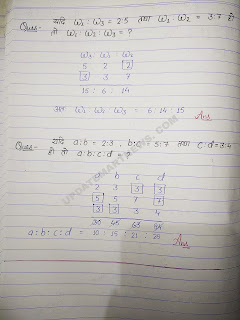 Ques- यदि ω₁ : ω₃ = 2:5 तथा ω₁ : ω₂ = 3:7 हो
तो ω₁ : ω₂ : ω₃ = ?
ω₃ ω₁ ω₂
5 2 2
3 3 7
15 : 6 : 14
अतः ω₁ : ω₂ : ω₃ = 6 : 14 : 15
Ans
Ques- यदि a:b = 2:3, b:c = 5:7 तथा c:d = 3:4
हो तो a:b:c:d = ?
a b c d
2 3 3 3
5 5 7 7
3 3 3 4
30 45 63 84
a:b:c:d = 10 : 15 : 21 : 28
Ans